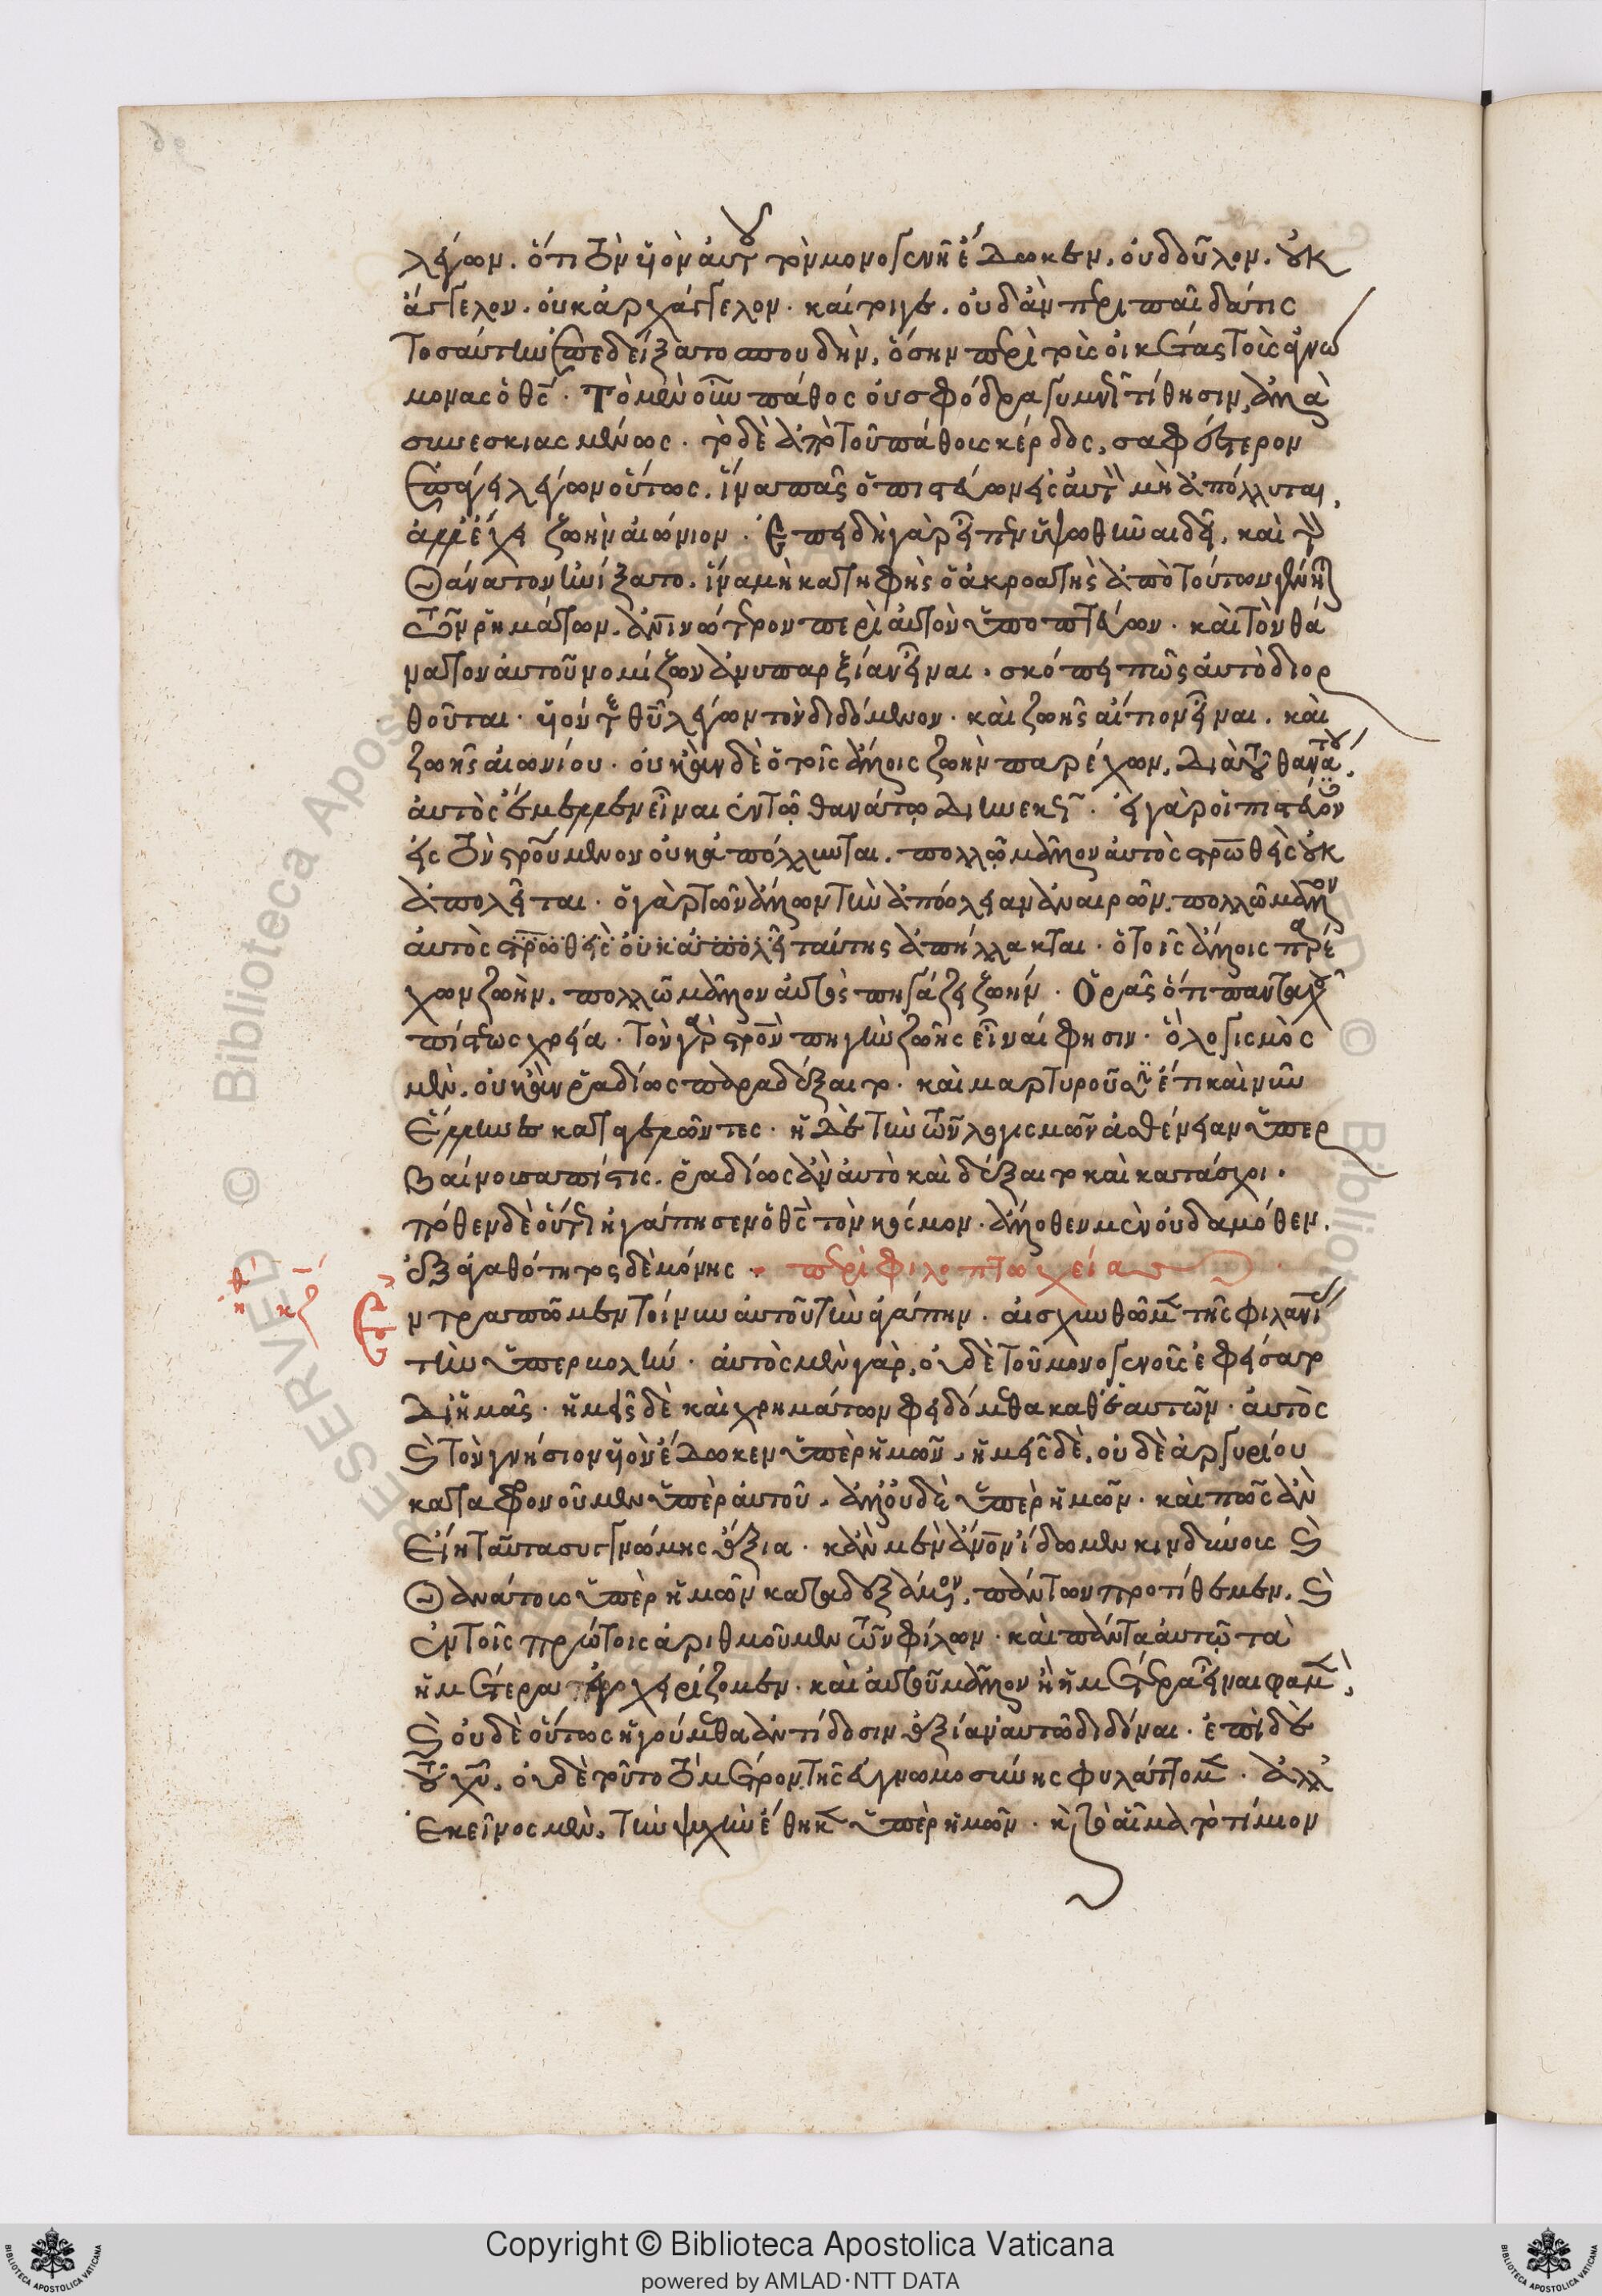 λέγων. ὅτι τὸν υἱὸν αὐτοῦ τὸν μονογενῆ ἔδωκεν. οὐ δοῦλον. οὐκ
ἄγγελον. οὐκ ἀρχάγγελον. καίτοιγε. οὐδ' ἂν περὶ παῖδά τις
τοσαύτην ἐπεδείξατο σπουδήν, ὅσην περὶ τοὺς οἰκέτας τοὺς ἀγνώ
μονας ὁ θς. Τὸ μὲν οὖν πάθος οὐ σφόδρα γυμνὸν τίθησιν, ἀλλὰ
συνεσκιασμένως. τὸ δὲ ἀπὸ τοῦ πάθους κέρδος, σαφέστερον
ἐπάγει λέγων οὕτως. ἵνα πᾶς ὁ πιστεύων εἰς αὐτὸν μὴ ἀπόλλυται,
ἀλλ' ἔχει ζωὴν αἰώνιον. Ἐπειδὴ γὰρ εἶπεν ὑψωθῆναι δεῖ, καὶ τὸν
θάνατον ἠνίξατο. ἵνα μὴ κατηφὴς ὁ ἀκροατὴς ἀπὸ τούτων γένηται
τῶν ῥημάτων. ἀνθρώπινώτερον περὶ αὐτὸν ὑποπτεύων. καὶ τὸν θά
νατον αὐτοῦ νομίζων ἀνυπαρξίαν εἶναι. σκόπει πῶς αὐτὸ διορ
θοῦται. υἱὸν τοῦ θυ λέγων τὸν διδόμενον. καὶ ζωῆς αἴτιον εἶναι. καὶ
ζωῆς αἰωνίου. οὐκ ἂν δὲ ὁ τοῖς ἄλλοις ζωὴν παρέχων, διὰ τοῦ θανάτου
αὐτὸς ἔμελλεν εἶναι ἐν τῷ θανάτῳ διηνεκῶς. εἰ γὰρ οἱ πιστεύοντες
εἰς τὸν ἐσταυρωμένον οὐκ ἀπόλλυνται. πολλῷ μᾶλλον αὐτὸς σταυρωθεὶς οὐκ
ἀπολεῖται. ὁ γὰρ τῶν ἄλλων τὴν ἀπώλειαν ἀναιρῶν, πολλῷ μᾶλλον
αὐτὸς σταυρωθεὶς οὐκ ἀπολεῖ ταύτης ἀπήλλακται. ὁ τοῖς ἄλλοις παρέ
χων ζωήν. πολλῷ μᾶλλον αὐτὸς πηγάζει ζωήν. Ὁρᾷς ὅτι πανταχοῦ
πίστεως χρεία. τὸν γὰρ στρὸν πηγὴν ζωῆς εἶναί φησιν. ὁ λογισμὸς
μὲν. οὐκ ἂν ῥαδίως παραδέξαιτο. καὶ μαρτυροῦσιν ἔτι καὶ νῦν
Ἕλληνες καταγελῶντες. ἡ δὲ τὴν τῶν λογισμῶν ἀσθένειαν ὑπερ
βαίνουσα πίστις. ῥαδίως ἂν αὐτὸ καὶ δέξαιτο καὶ κατάσχοι.
πόθεν δὲ οὕτως ἠγάπησεν ὁ θς τὸν κόσμον. ἄλλοθεν μὲν οὐδαμόθεν.
ἐξ ἀγαθότητος δὲ μόνης. περὶ φιλοπτωχείας
Ἐντραπῶμεν τοίνυν αὐτοῦ τὴν ἀγάπην. αἰσχυνθῶμεν τῆς φιλανίας
τὴν ὑπερβολήν. αὐτὸς μὲν γὰρ, οὐδὲ τοῦ μονογενοῦς ἐφείσατο
δι' ἡμᾶς. ἡμεῖς δὲ καὶ χρημάτων φειδόμεθα καθ' ἑαυτῶν. αὐτὸς
καὶ τὸν γνήσιον υἱὸν ἔδωκεν ὑπὲρ ἡμῶν, ἡμεῖς δὲ, οὐδὲ ἀργυρίου
καταφρονοῦμεν ὑπὲρ αὐτοῦ. ἀλλ' οὐδὲ ὑπὲρ ἡμῶν. καὶ πῶς ἂν
εἴη ταῦτα συγγνώμης ἄξια. κἂν μὲν ἄνον ἴδωμεν κινδύνους καὶ
θανάτους ὑπὲρ ἡμῶν καταδεξάμενον, πάντων προτίθεμεν, καὶ
ἐν τοῖς πρώτοις ἀριθμοῦμεν τῶν φίλων. καὶ πάντα αὐτῷ τὰ
ἡμέτερα ἐγχειρίζομεν. καὶ αὐτοῦ μᾶλλον ἢ ἡμέτερα εἶναι φαμὲν,
καὶ οὐδὲ οὕτως ἡγούμεθα ἀντίδοσιν ἀξίαν αὐτῷ διδόναι. ἐπὶ δὲ
τοῦ χυ, οὐδὲ τοῦτο τὸ μέτρον τῆς εὐγνωμοσύνης φυλάττομεν. ἀλλ'
ἐκεῖνος μὲν, τὴν ψυχὴν ἔθηκεν ὑπὲρ ἡμῶν. καὶ τὸ αἷμα τὸ τίμιον
Copyright © Biblioteca Apostolica Vaticana
powered by AMLAD·NTT DATA